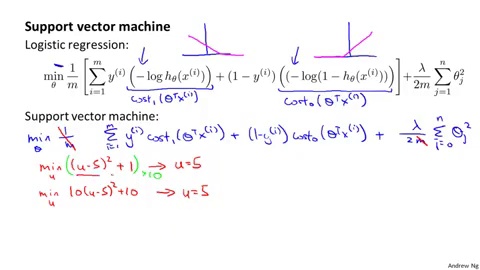 Support vector machine
Logistic regression:
min_θ 1/m [ ∑_{i=1}^{m} y^{(i)} (−log h_θ(x^{(i)})) + (1 − y^{(i)}) ((−log(1 − h_θ(x^{(i)})))) ] + λ/2m ∑_{j=1}^{n} θ_j^2
cost₁(θᵀx^{(i)}) cost₀(θᵀx^{(i)})
Support vector machine:
min_θ 1/m ∑_{i=1}^{m} y^{(i)} cost₁(θᵀx^{(i)}) + (1−y^{(i)}) cost₀(θᵀx^{(i)}) + λ/2m ∑_{j=0}^{n} θ_j^2
min_u ((u−5)² + 1) ×10 → u=5
min_u 10(u−5)² + 10 → u=5
Andrew Ng